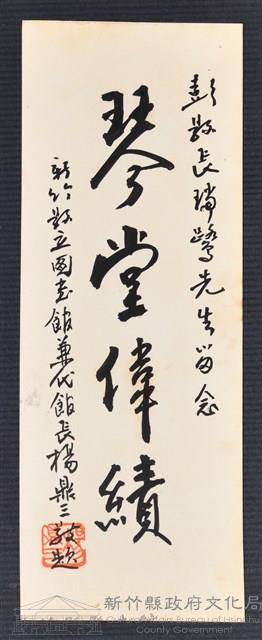 彭縣長瑞鷺先生留念
琴堂偉績
新竹縣立圖書館兼代館長楊鼎三敬題
新竹縣政府文化局
Cultural Affairs Bureau of Hsinchu County Government